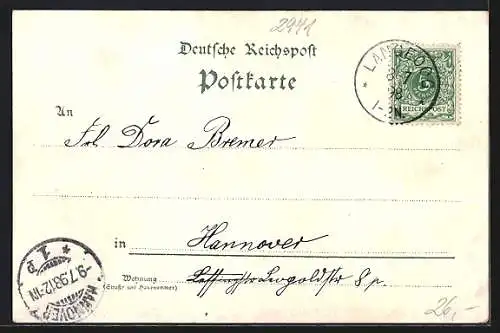 2941
Deutsche Reichspost
Postkarte
LANGEOOG
98
1-2N.
5
REICHSPOST
An
Frl. Dora Bremer
in Hannover
Wohnung
(Straße und Hausnummer)
Leopoldstr 8 p.
HANNOVER
-9.7.98.12-1N
* 1 p
26,-